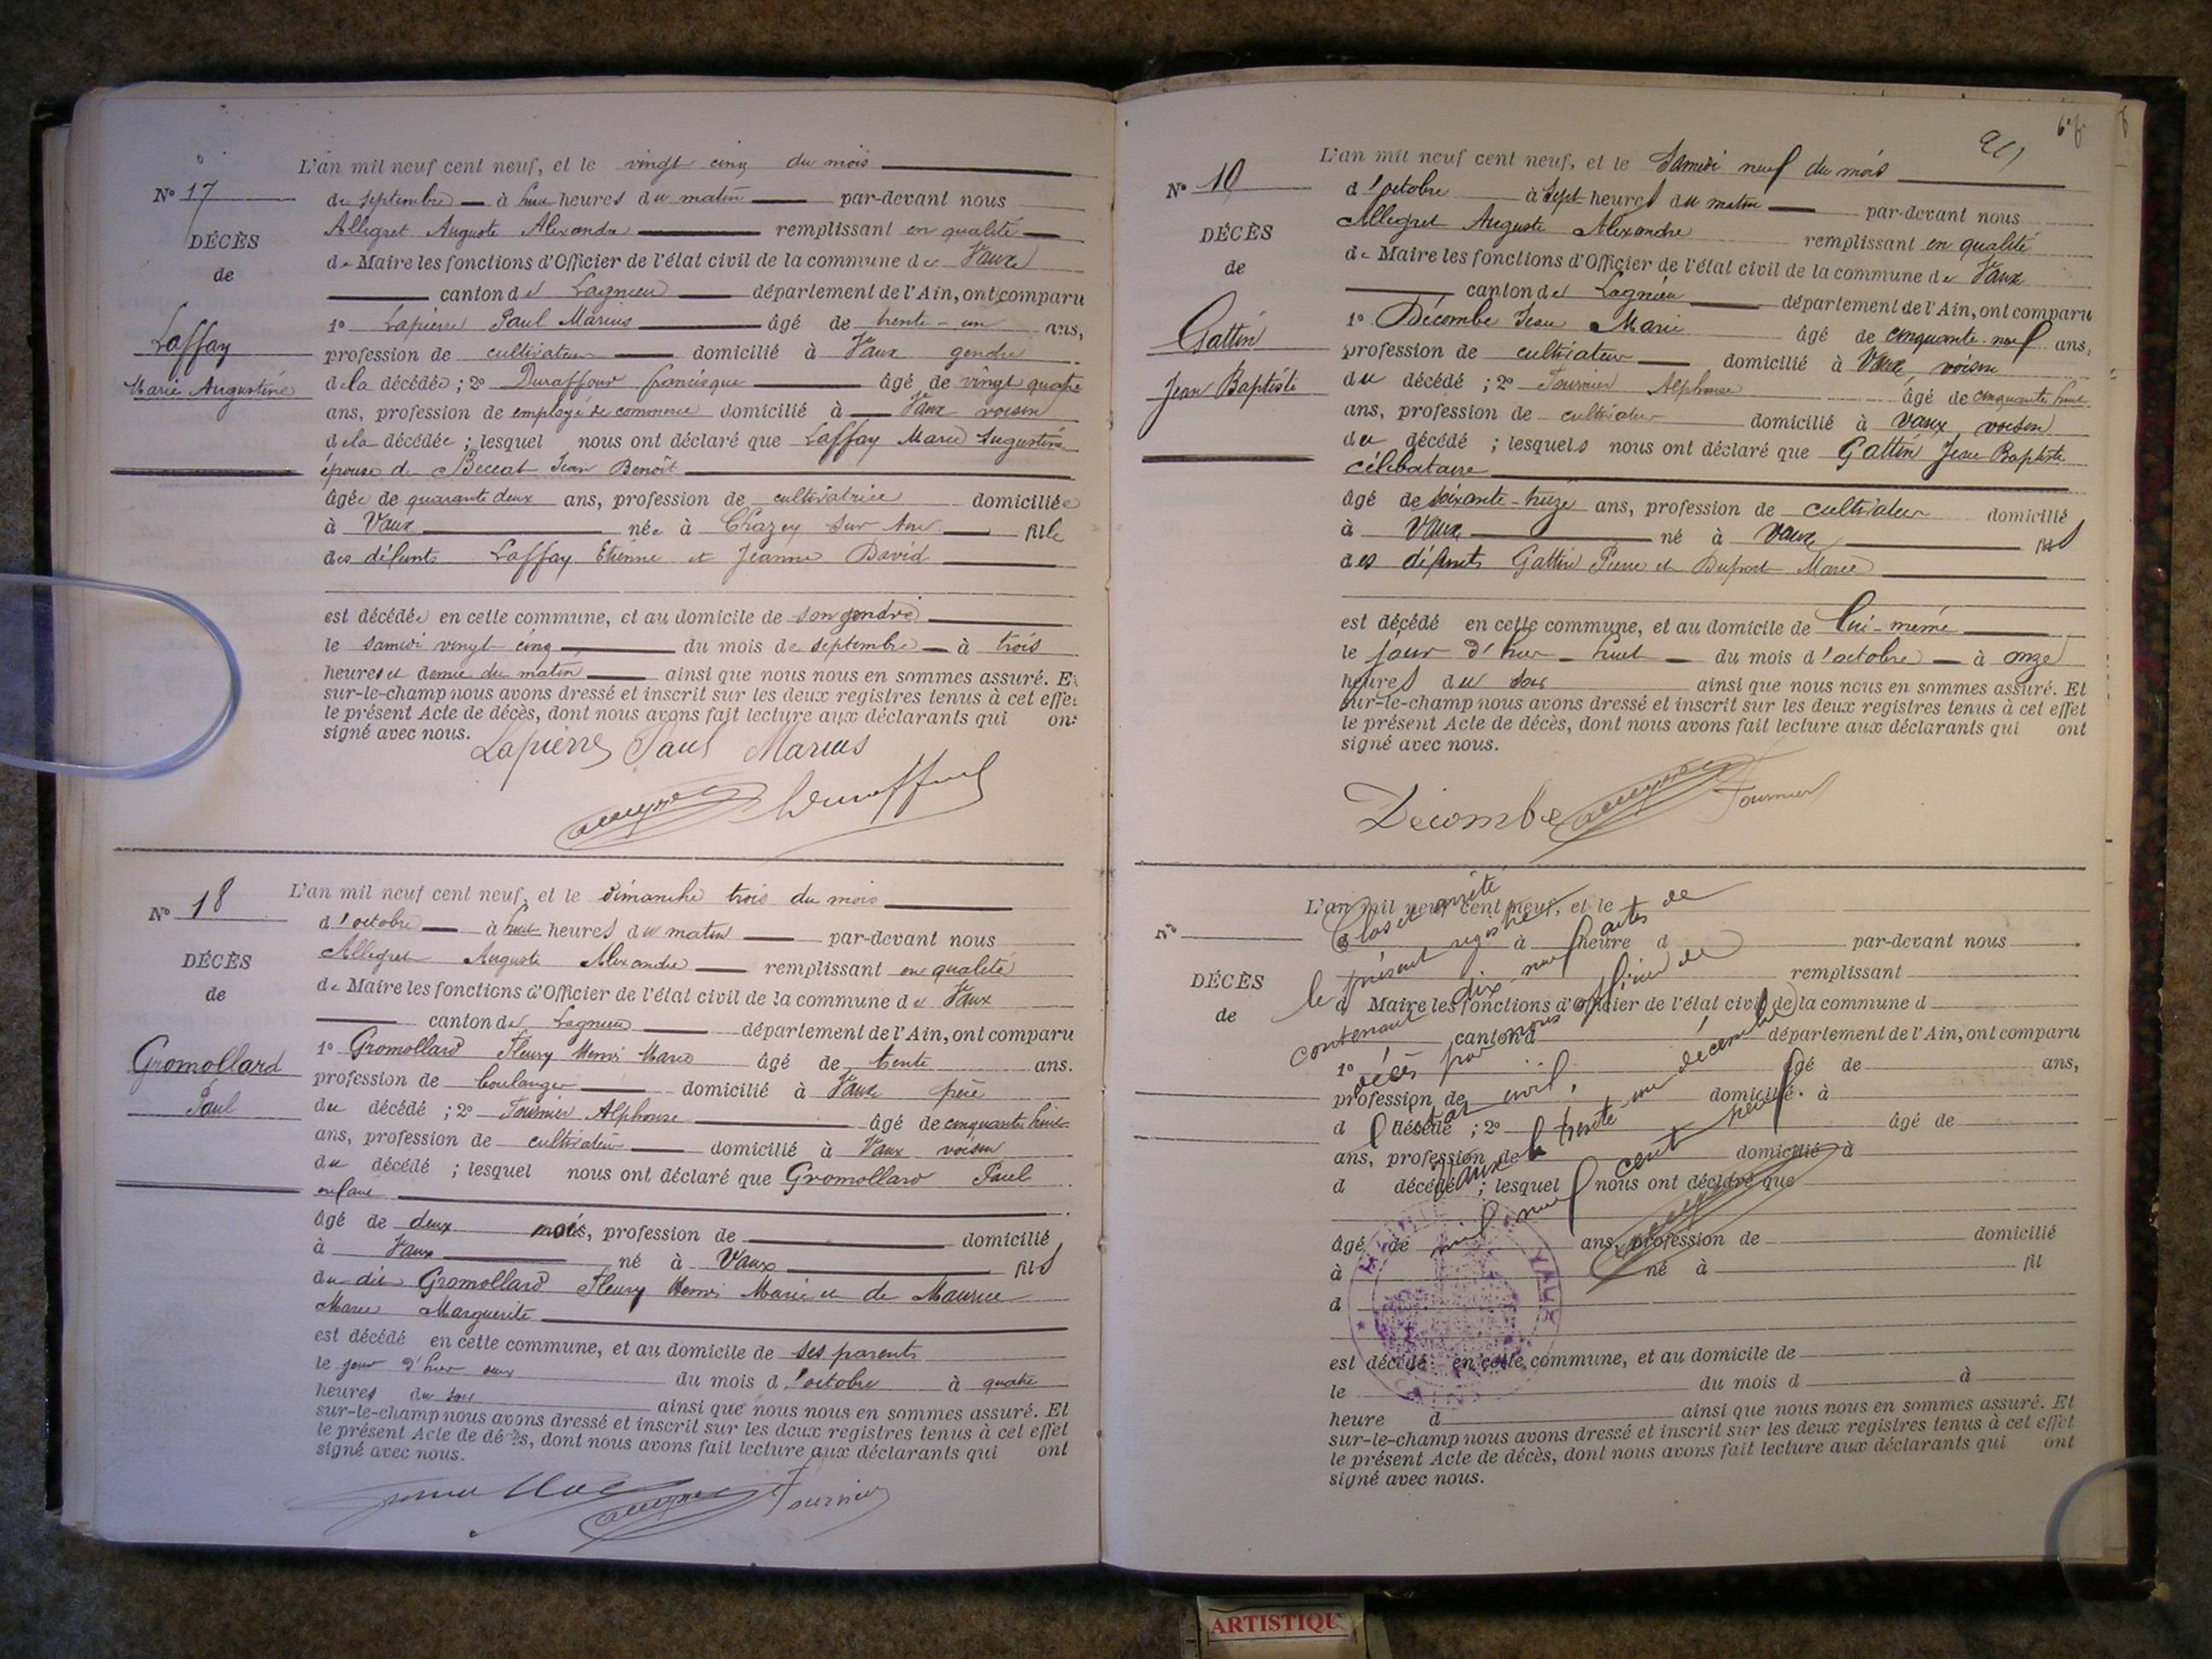 L'an mil neuf cent neuf, et le vingt cinq du mois
N° 17
de septembre à huit heures du matin par-devant nous
Allegret Auguste Alexandre remplissant en qualité
DÉCÈS
de Maire les fonctions d'Officier de l'état civil de la commune de Vaux
de
canton de Lagnieu département de l'Ain, ont comparu
1° Lapierre Paul Marius âgé de trente-un ans,
Laffay
profession de cultivateur domicilié à Vaux gendre
Marie Augustine
de la décédée ; 2° Duraffour francisque âgé de vingt quatre
ans, profession de employé de commerce domicilié à Vaux voisin
de la décédée ; lesquel nous ont déclaré que Laffay Marie Augustine
épouse de Beccat Jean Benoît
âgée de quarante deux ans, profession de cultivatrice domiciliée
à Vaux née à Chazey sur Ain fille
des défunts Laffay Etienne et Jeanne David
est décédée en cette commune, et au domicile de son gendre
le samedi vingt cinq du mois de septembre à trois
heures et demie du matin ainsi que nous nous en sommes assuré. Et
sur-le-champ nous avons dressé et inscrit sur les deux registres tenus à cet effet
le présent Acte de décès, dont nous avons fait lecture aux déclarants qui ont
signé avec nous.
Lapierre Paul Marius
Duraffour
L'an mil neuf cent neuf, et le dimanche trois du mois
N° 18
d'octobre à huit heures du matin par-devant nous
Allegret Auguste Alexandre remplissant en qualité
DÉCÈS
de Maire les fonctions d'Officier de l'état civil de la commune de Vaux
de
canton de Lagnieu département de l'Ain, ont comparu
1° Gromollard Fleury Henri Marie âgé de trente ans.
Gromollard
profession de boulanger domicilié à Vaux père
Paul
du décédé ; 2° Fournier Alphonse âgé de cinquante huit
ans, profession de cultivateur domicilié à Vaux voisin
du décédé ; lesquel nous ont déclaré que Gromollard Paul
enfant
âgé de deux mois, profession de domicilié
à Vaux né à Vaux fils
du dit Gromollard Fleury Henri Marie et de Maurice
Marie Marguerite
est décédé en cette commune, et au domicile de ses parents
le jour d'hier deux du mois d'octobre à quatre
heures du soir ainsi que nous nous en sommes assuré. Et
sur-le-champ nous avons dressé et inscrit sur les deux registres tenus à cet effet
le présent Acte de décès, dont nous avons fait lecture aux déclarants qui ont
signé avec nous.
Fournier
L'an mil neuf cent neuf, et le Samedi neuf du mois
N° 19
d'octobre à sept heures du matin par-devant nous
Allegret Auguste Alexandre remplissant en qualité
DÉCÈS
de Maire les fonctions d'Officier de l'état civil de la commune de Vaux
de
canton de Lagnieu département de l'Ain, ont comparu
Gattin
1° Décombe Jean Marie âgé de cinquante-neuf ans,
profession de cultivateur domicilié à Vaux voisin
Jean Baptiste
du décédé ; 2° Fournier Alphonse âgé de cinquante huit
ans, profession de cultivateur domicilié à Vaux voisin
du décédé ; lesquels nous ont déclaré que Gattin Jean Baptiste
célibataire
âgé de soixante-treize ans, profession de cultivateur domicilié
à Vaux né à Vaux fils
des défunts Gattin Pierre et Dupont Marie
est décédé en cette commune, et au domicile de lui-même
le jour d'hier huit du mois d'octobre à onze
heures du soir ainsi que nous nous en sommes assuré. Et
sur-le-champ nous avons dressé et inscrit sur les deux registres tenus à cet effet
le présent Acte de décès, dont nous avons fait lecture aux déclarants qui ont
signé avec nous.
Décombe Fournier
L'an mil neuf cent neuf, et le
N°
d à heure d par-devant nous
remplissant
DÉCÈS
d Maire les fonctions d'Officier de l'état civil de la commune d
de
canton d département de l'Ain, ont comparu
1° âgé de ans,
profession de domicilié à
d décédé ; 2° âgé de
ans, profession de domicilié à
d décédé ; lesquel nous ont déclaré que
âgé de ans, profession de domicilié
à né à fil
d
est décédé en cette commune, et au domicile de
le du mois d à
heure d ainsi que nous nous en sommes assuré. Et
sur-le-champ nous avons dressé et inscrit sur les deux registres tenus à cet effet
le présent Acte de décès, dont nous avons fait lecture aux déclarants qui ont
signé avec nous.
Clos et arrêté
le présent registre
contenant dix-neuf actes de
décès par nous officier de
l'état civil,
Vaux le trente un décembre
mil neuf cent neuf.
VAUX
ARTISTIQU